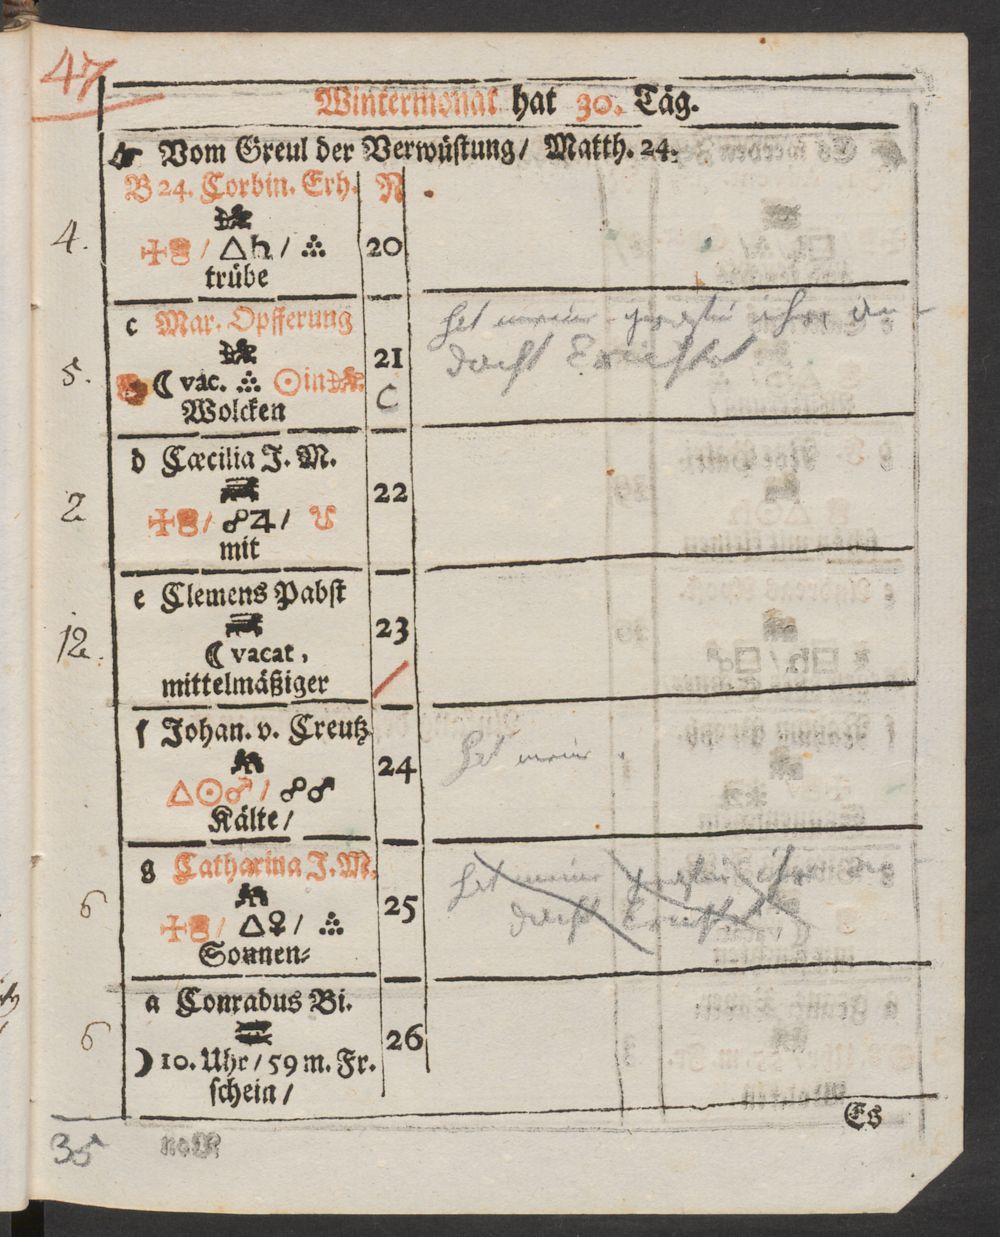 47
Wintermonat hat 30. Täg.
☞ Vom Greul der Verwüstung/ Matth. 24.
B 24. Corbin. Erh. N
4.
/ △♄ / ∴ 20
trübe
c Mar. Opfferung
het meine ihr an
21
dacht
5.
☾ vac. ∴ ☉in
C
Wolcken
d Cæcilia J. M.
2
22
/ ☍♃ / ♉
mit
e Clemens Pabst
12.
23
☾ vacat,
mittelmäßiger
f Johan. v. Creutz
het meine
24
△☉♂ / ☍♂
Kälte /
g Catharina J. M.
het meine ihr an
6
25
dacht
/ △♀ / ∴
Sonnen-
a Conradus Bi.
6
26
☽ 10. Uhr / 59 m. Fr.
schein /
Es
35